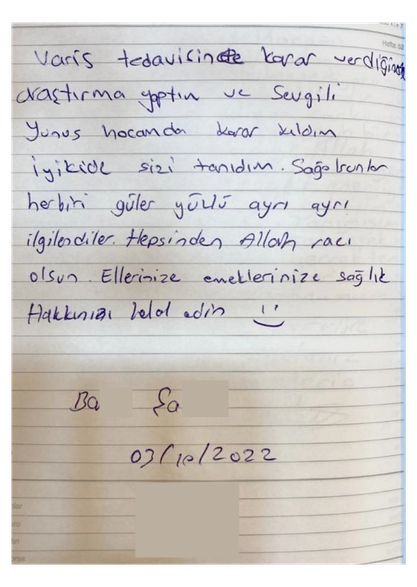 Varis tedavisinde karar verdiğimde
araştırma yaptım ve Sevgili
Yunus hocamda karar kıldım
iyikide sizi tanıdım. Sağolsunlar
herbiri güler yüzlü ayrı ayrı
ilgilendiler. Hepsinden Allah razı
olsun. Ellerinize emeklerinize sağlık
Hakkınızı helal edin
Ba Şa
03/10/2022